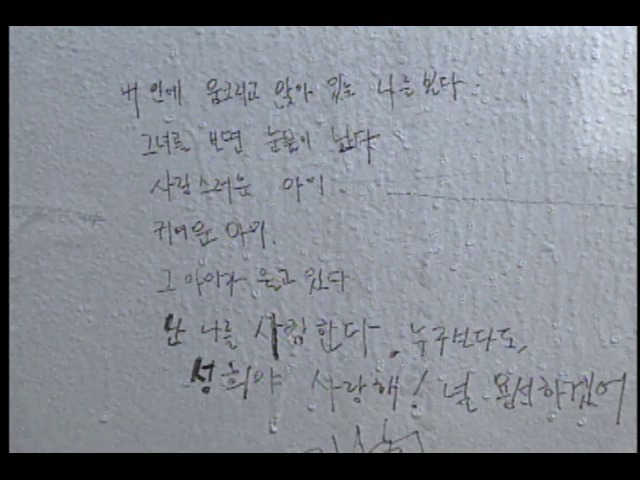 내 안에 움크리고 앉아 있는 나를 본다.
그녀를 보면 눈물이 난다
사랑스러운 아이.
귀여운 아이.
그 아이가 울고 있다
난 나를 사랑한다. 누구보다도,
성희야 사랑해! 널 용서하겠어